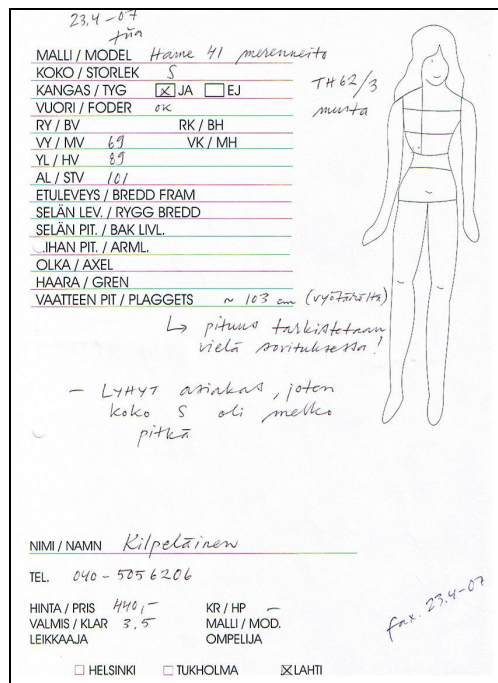 23.4-07
MALLI / MODEL Hame 41 merenneito
KOKO / STORLEK S
KANGAS / TYG ☒ JA ☐ EJ
TH 62/3
VUORI / FODER ok
musta
RY / BV RK / BH
VY / MV 69 VK / MH
YL / HV 89
AL / STV 101
ETULEVEYS / BREDD FRAM
SELÄN LEV. / RYGG BREDD
SELÄN PIT. / BAK LIVL.
.IHAN PIT. / ARML.
OLKA / AXEL
HAARA / GREN
VAATTEEN PIT / PLAGGETS ~ 103 cm (vyötäröltä)
↳ pituus tarkistetaan
vielä sovituksessa!
- LYHYT asiakas, joten
koko S oli melko
pitkä
NIMI / NAMN Kilpeläinen
TEL. 040-5056206
HINTA / PRIS 440,- KR / HP -
VALMIS / KLAR 3.5 MALLI / MOD.
LEIKKAAJA OMPELIJA
fax. 23.4-07
☐ HELSINKI ☐ TUKHOLMA ☒ LAHTI